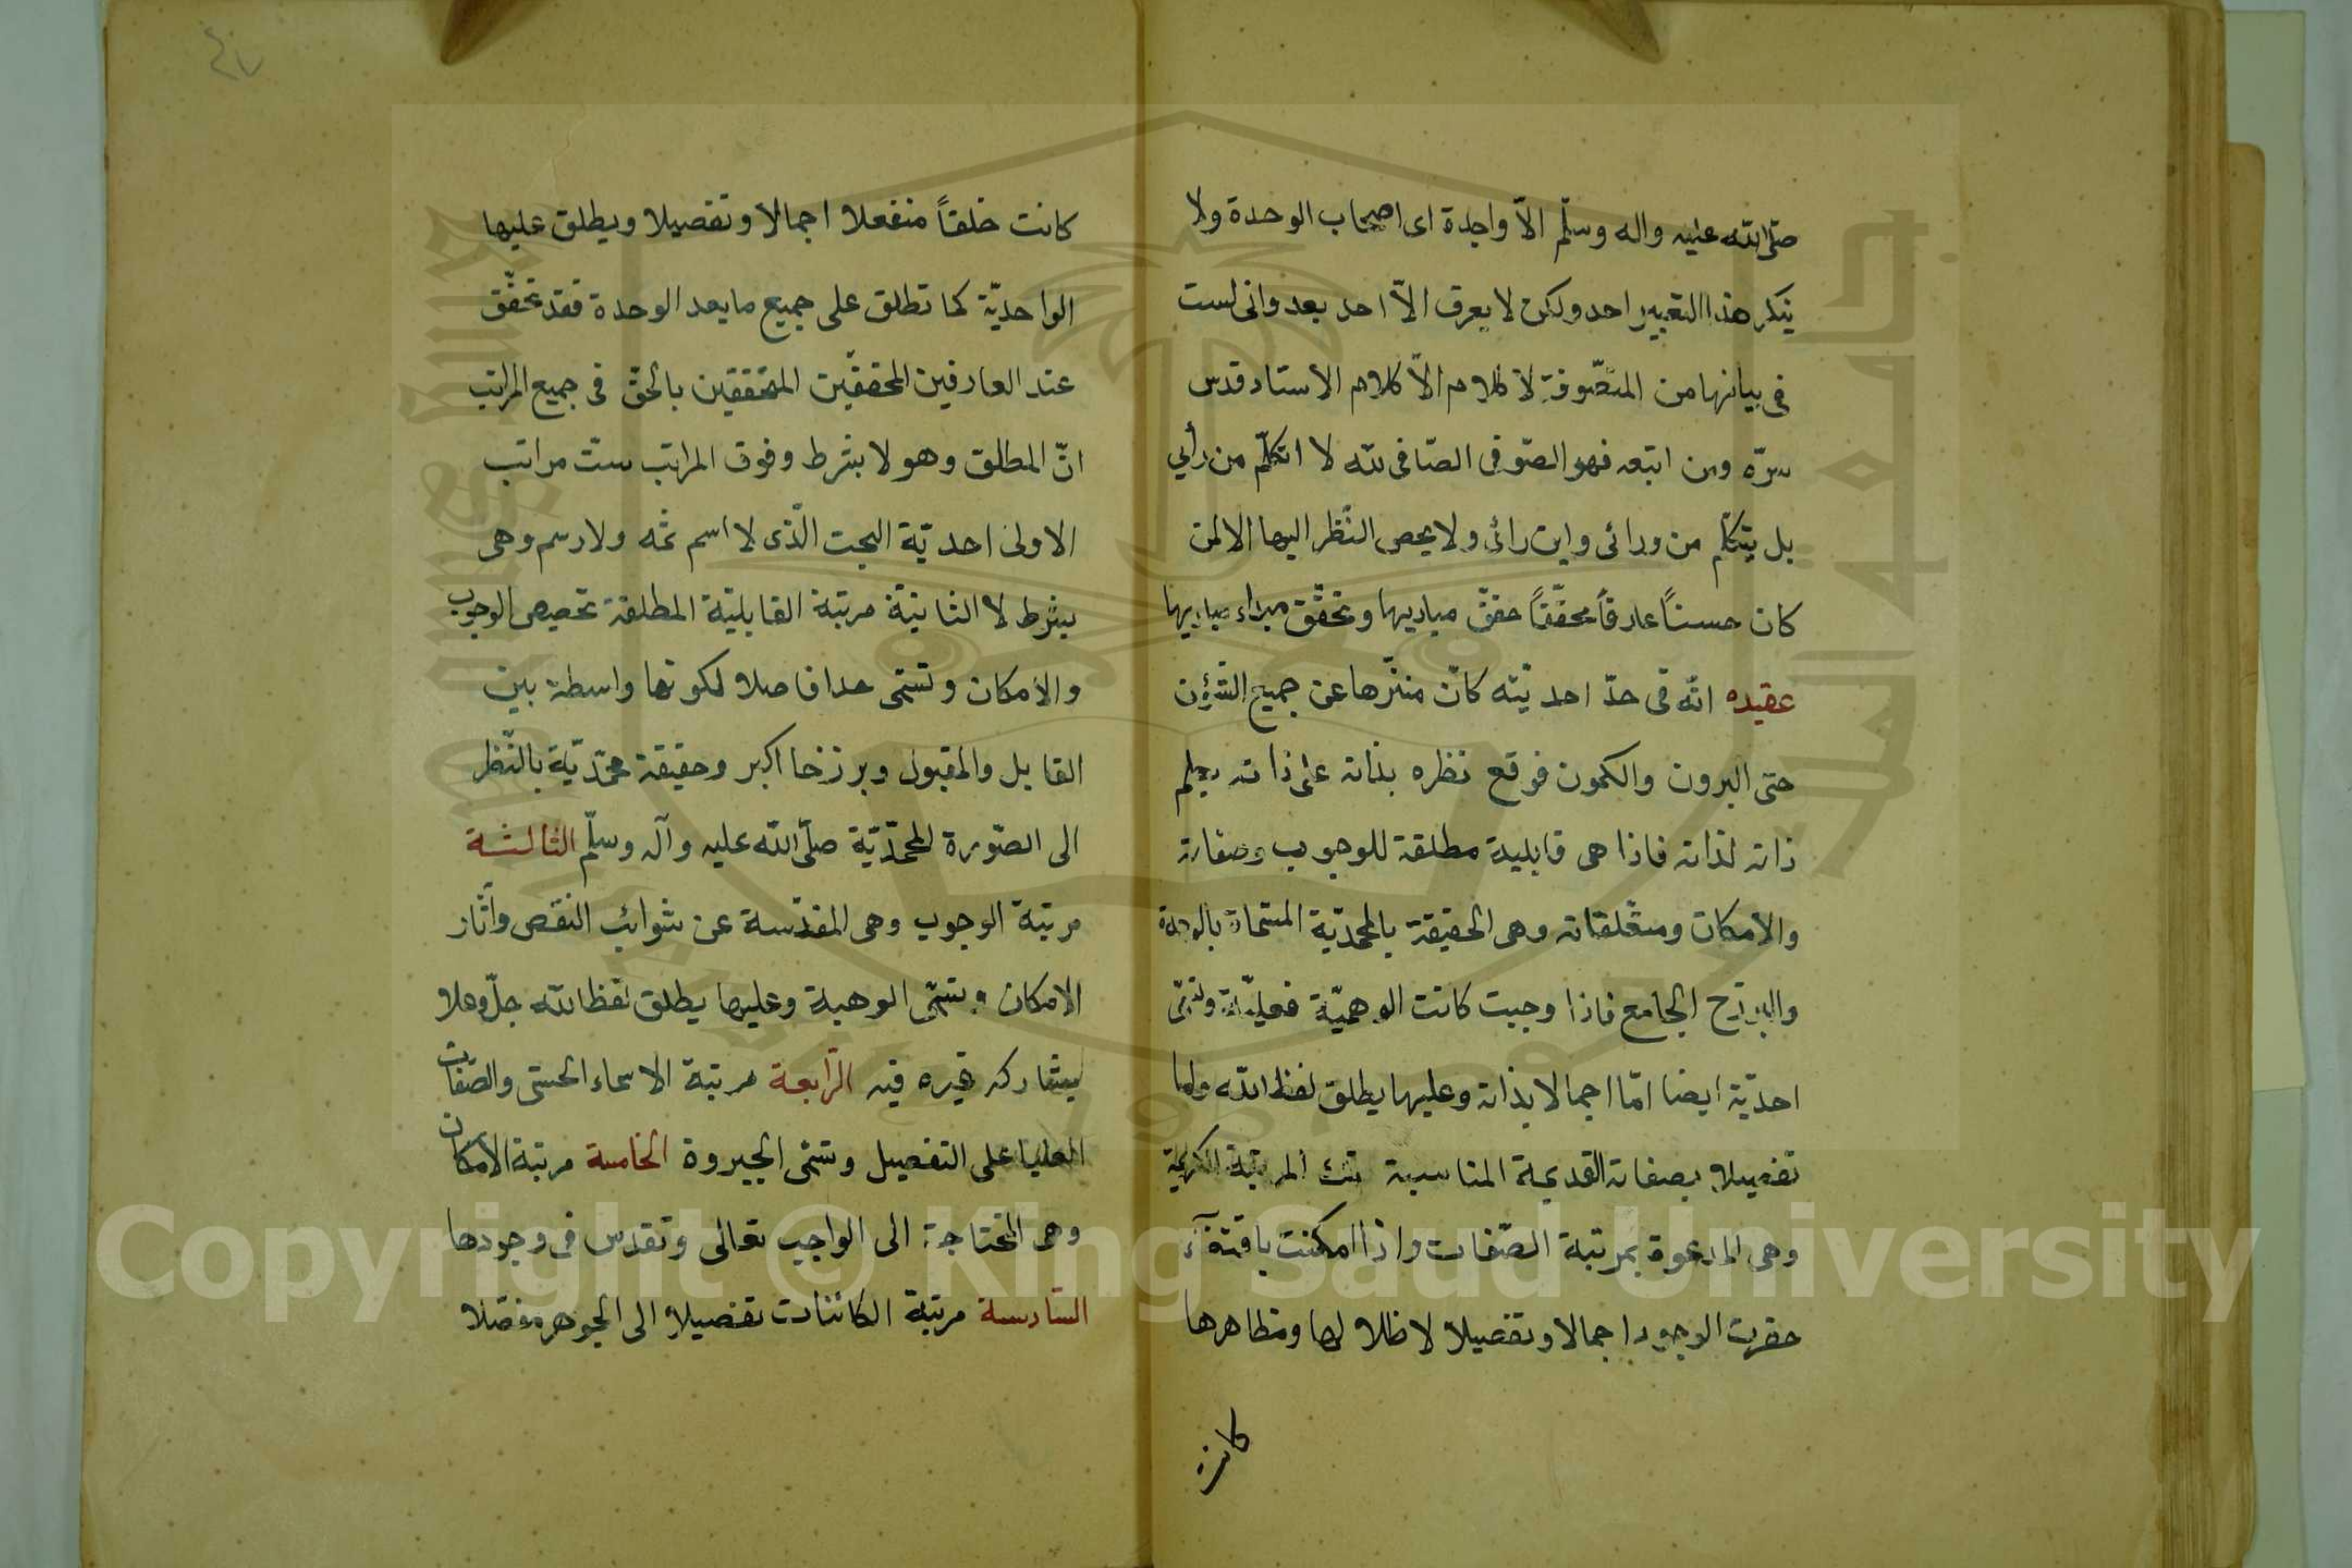 صلّى الله عليه واله وسلّم الاّ واحدة اى اصحاب الوحدة ولا
ينكر هذا التعبير احد ولكن لا يعرف الاّ احد بعد وانى لست
فى بيانها من المتصّوفة لا كلام الاّ كلام الاستاد قدس
سرّه ومن اتبعه فهو الصّوفى الصّافى لله لا اتكلّم من رأيي
بل يتكلّم من ورائى واين رائى ولا يحص النّظر اليها الا لمن
كان حسناً عارفاً محقّقاً حقّق مباديها وتحقّق مبداء مباديها
عقيده انّه فى حدّ احديّته كان منزّها عن جميع الشؤن
حتى البرون والكمون فوقع نظره بذاته على ذاته يعلم
ذاته لذاته فاذا هى قابلية مطلقة للوجوب وصفاته
والامكان ومتعلقاته وهى الحقيقة بالمحمديّة المسّماة بالوحدة
والبرزخ الجامع فاذا وجبت كانت الوهميّة فعليّة
احديّة ايضا امّا اجمالا بذاته وعليها يطلق لفظ الله
تفصيلا بصفاته القديمة المناسبة تلك المرتبة الكريمة
وهى المدعوة بمرتبة الصّفات واذا امكنت باقتفآء
حقرت الوجود اجمالا وتفصيلا لا ظلالا لها ومظاهرها
كانت
كانت خلقاً منفعلا اجمالا وتفصيلا ويطلق عليها
الواحديّة كما تطلق على جميع ما يعد الوحدة فقد تحقّق
عند العارفين المحققّين المتحققين بالحقّ فى جميع المراتب
انّ المطلق وهو لا بشرط وفوق المراتب ستّ مراتب
الاولى احديّة البحت الّذى لا اسم ثمه ولا رسم وهى
بشرط لا الثانيّة مرتبة القابليّة المطلقة تحصيص الوجوب
والامكان وتسّمى حدا فاصلا لكونها واسطة بين
القابل والمقبول وبرزخا اكبر وحقيقة محمّديّة بالنّظر
الى الصّورة المحمّديّة صلّى الله عليه وآله وسلّم الثالثة
مرتبة الوجوب وهى المقدّسة عن شوائب النقص وآثار
الامكان وتسّمى الوهية وعليها يطلق لفظ الله جلّ وعلا
ليشاركه غيره فيه الرّابعة مرتبة الاسماء الحسنى والصّفات
العليا على التفصيل وتسّمى الجبروة الخامسة مرتبة الامكان
وهى المحتاجة الى الواجب تعالى وتقدس فى وجودها
السّادسة مرتبة الكائنات تفصيلا الى الجوهر مفصّلا
Copyright © King Saud University